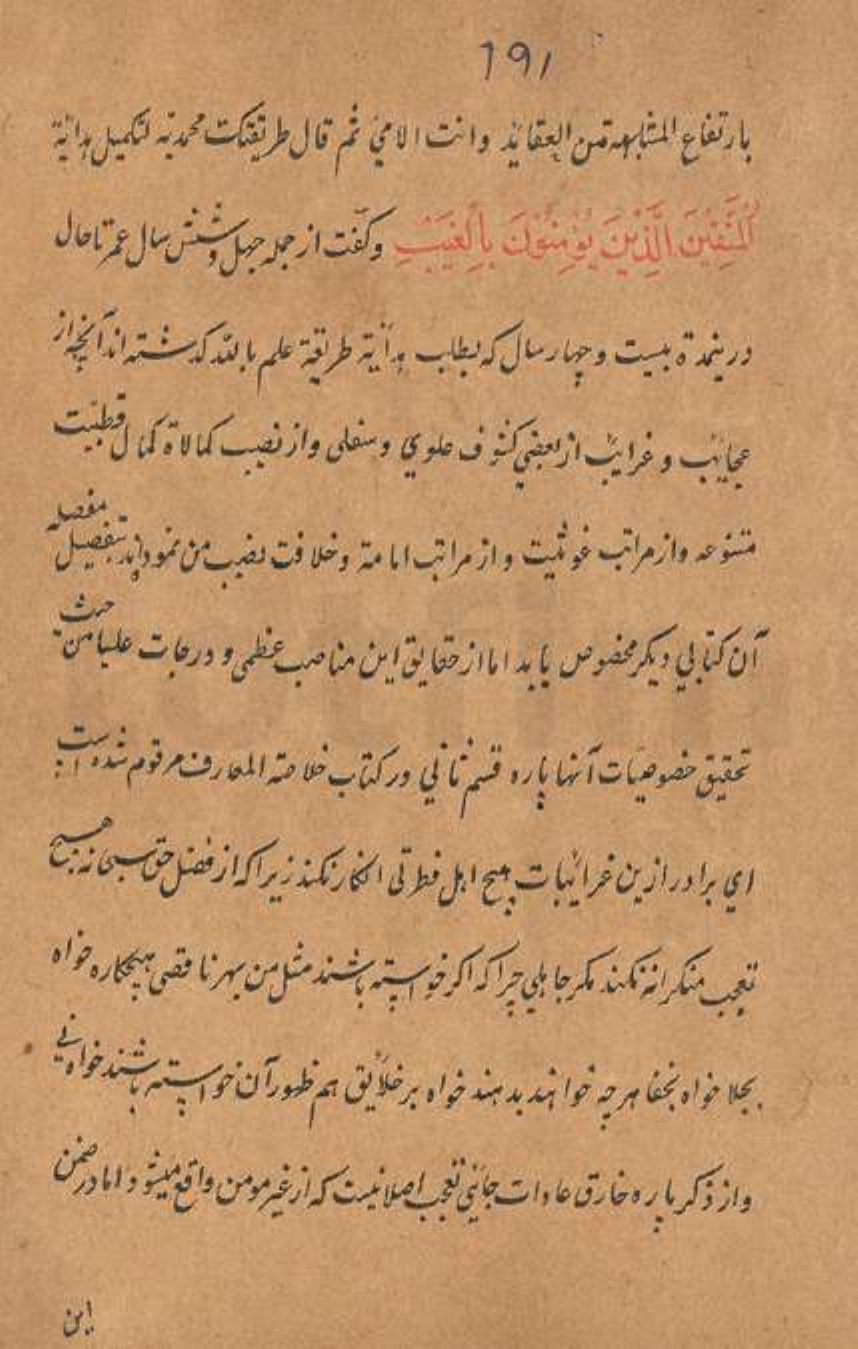 191
بارتفاع المشابهة من العقايد وانت الامين ثم قال طريقتك محمدية لتكميل هداية
لمتقين الذين يؤمنون بالغيب وگفت از جمله چهل وشش سال عمر تا حال
درینمدة بیست وچهار سال که بطلب هدایة طریقة علم بالله گذشته اند آنچه از
عجایب و غرایب از بعضی کشوف علوي وسفلی واز نصیب کمالاة کمال قطبیت
متنوعه واز مراتب غوثیت و از مراتب امامة وخلافت نصیب من نموده‌اند بتفصیل مفصله
آن کتابی دیگر مخصوص یابد اما از حقایق این مناصب عظمی و درجات علیا من حیث
تحقیق خصوصیات آنها پاره قسم ثانی در کتاب خلاصة المعارف مرقوم شده است
اي برادر ازین غرایبات هیچ اهل فطرتی انکار نکند زیرا که از فضل حق سبحانه هیچ
تعجب منکرانه نکند مکر جاهلي چرا که اکر خواسته باشند مثل من بهر ناقصی هیچکاره خواه
بجلا خواه بخفا هر چه خواهند بدهند خواه بر خلایق هم ظهور آن خواسته باشند خواه نی
واز ذکر پاره خارق عادات جایي تعجب اصلا نیست که از غیر مومن واقع میشود اما در ضمن
این